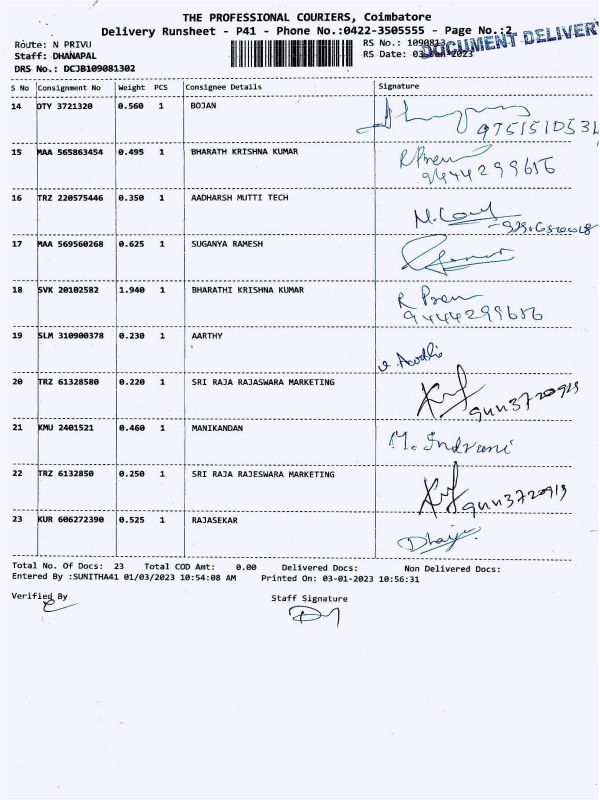 THE PROFESSIONAL COURIERS, Coimbatore
Delivery Runsheet - P41 - Phone No.:0422-3505555 - Page No.:2
DOCUMENT DELIVERY
Route: N PRIVU
Staff: DHANAPAL
DRS No.: DCJB109081302
RS No.: 1090813
RS Date: 03-Jan-2023
S No Consignment No Weight PCS Consignee Details Signature
14 OTY 3721320 0.560 1 BOJAN
9751510531
15 MAA 565863454 0.495 1 BHARATH KRISHNA KUMAR R Prem
9444299656
16 TRZ 220575446 0.350 1 AADHARSH MUTTI TECH
17 MAA 569560268 0.625 1 SUGANYA RAMESH
18 SVK 20102582 1.940 1 BHARATHI KRISHNA KUMAR R Prem
9444299656
19 SLM 310900378 0.230 1 AARTHY
20 TRZ 61328580 0.220 1 SRI RAJA RAJASWARA MARKETING
21 KMU 2401521 0.460 1 MANIKANDAN M. Indrani
22 TRZ 6132850 0.250 1 SRI RAJA RAJESWARA MARKETING
23 KUR 606272390 0.525 1 RAJASEKAR
Total No. Of Docs: 23 Total COD Amt: 0.00 Delivered Docs: Non Delivered Docs:
Entered By :SUNITHA41 01/03/2023 10:54:08 AM Printed On: 03-01-2023 10:56:31
Verified By
Staff Signature